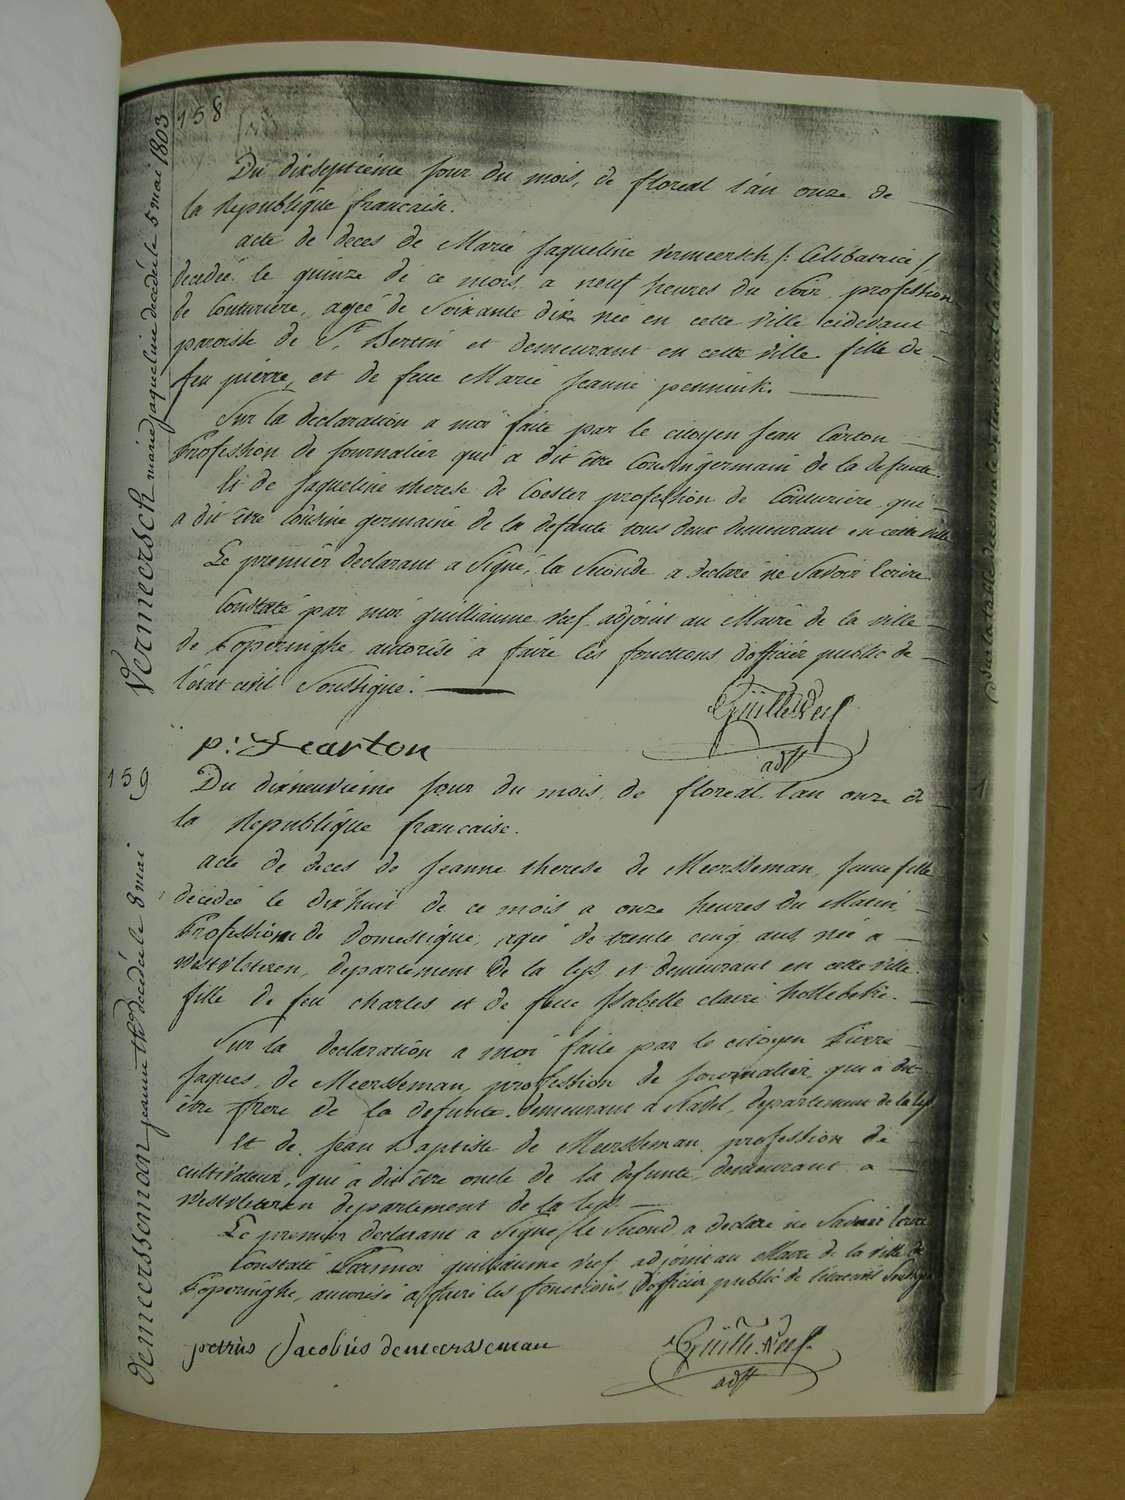 158
Vermeersch marie jaqueline decedé le 5 mai 1803
Du dixseptieme jour du mois, de floreal l'an onze de
la Republique francaise.
acte de deces de Marie jaqueline vermeersch /: Celibatrice /
decedée le quinze de ce mois a neuf heures du soir, profession
de Couturiere, ageé de soixante dix née en cette ville cidevant
paroisse de St. Bertin et demeurant en cette ville fille de
feu pierre, et de feue Marie jeanne pennink.
Sur la declaration a moi faite par le citoyen jean Carton
Profession de journalier qui a dit être Cousingermain de la defunte.
Et de jaqueline therese de Coester profession de Couturiere, qui
a dit être Cousine germaine de la defunte tous deux demeurant en cette ville
Le premier declarant a signé, la seconde a declaré ne savoir ecrire
Constaté par moi guilliaume nef adjoint au Maire de la ville
de Poperinghe, autorisé a faire les fonctions d'officier public de
l'etat civil soussigné.
Guille Nef
adjt
p: J carton
159
demeersseman jeanne the decedée le 8 mai
Du dixneuvieme jour du mois de floreal l'an onze de
la Republique francaise.
acte de deces de jeanne therese de Meersseman, jeune fille
decedeé le dixhuit de ce mois a onze heures du Matin
Profession de domestique, ageé de trente cinq ans, née a
westvleteren, departement de la lys, et demeurant en cette ville.
fille de feu charles et de feue Isabelle claire hollebeke.
Sur la declaration a moi faite par le citoyen Pierre
jaques de Meersseman, profession de journalier, qui a dit
être frere de la defunte. demeurant a departement de la lys
Et de jean Baptiste de Meersseman, profession de
cultivateur, qui a dit être oncle de la defunte, demeurant a
westvleteren departement de la lys.
Le premier declarant a signé / le second a declaré ne savoir ecrire
Constaté Par moi guilliaume nef adjoint au Maire de la ville de
Poperinghe, autorisé a faire les fonctions d'officier public de l'etat civil soussigné
petrus Jacobus demeersseman
Guille Nef
adjt